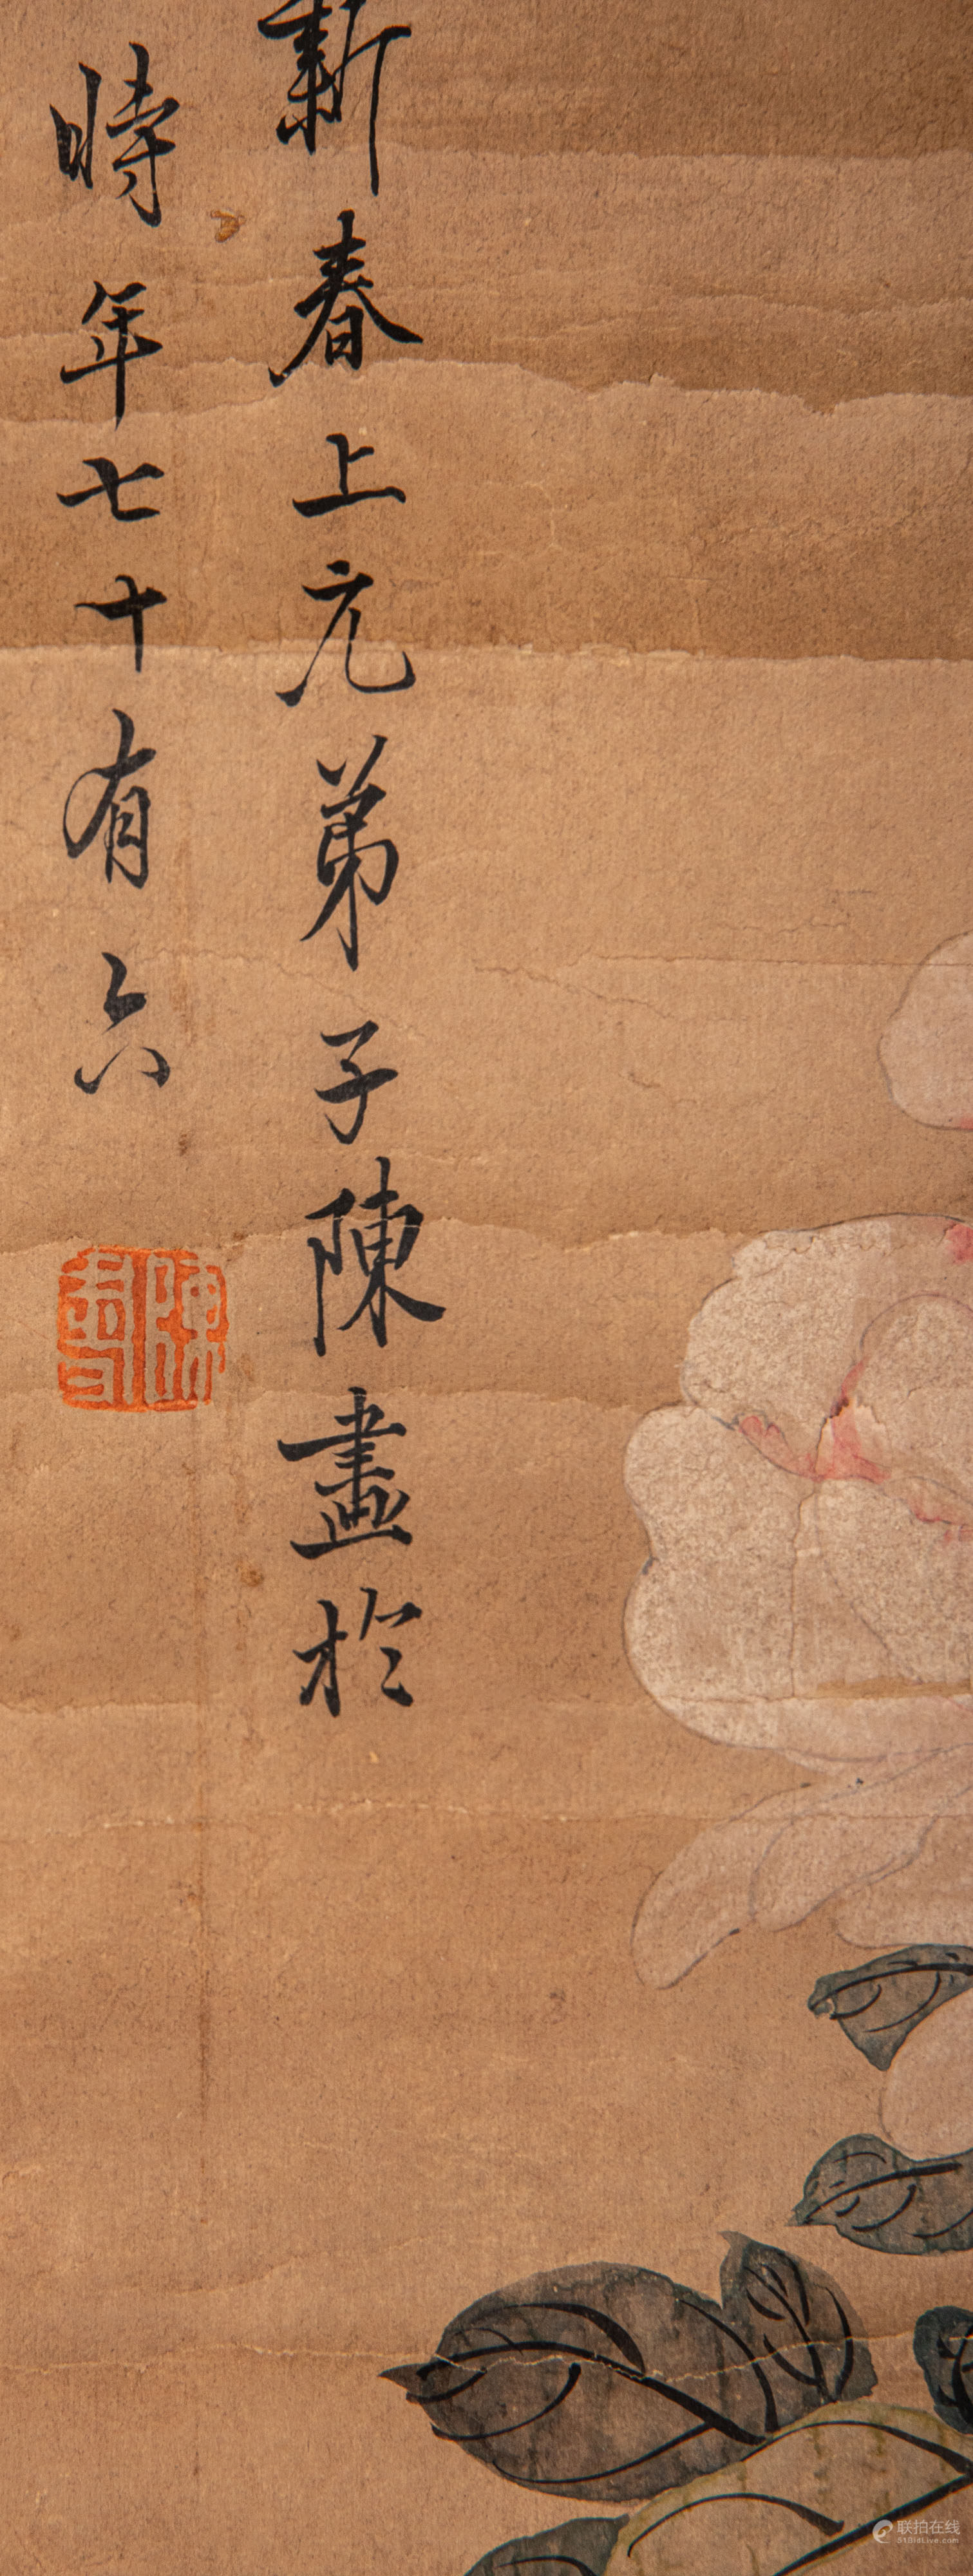 新春上元弟子陳畫於
時年七十有六
联拍在线
51bidlive.com